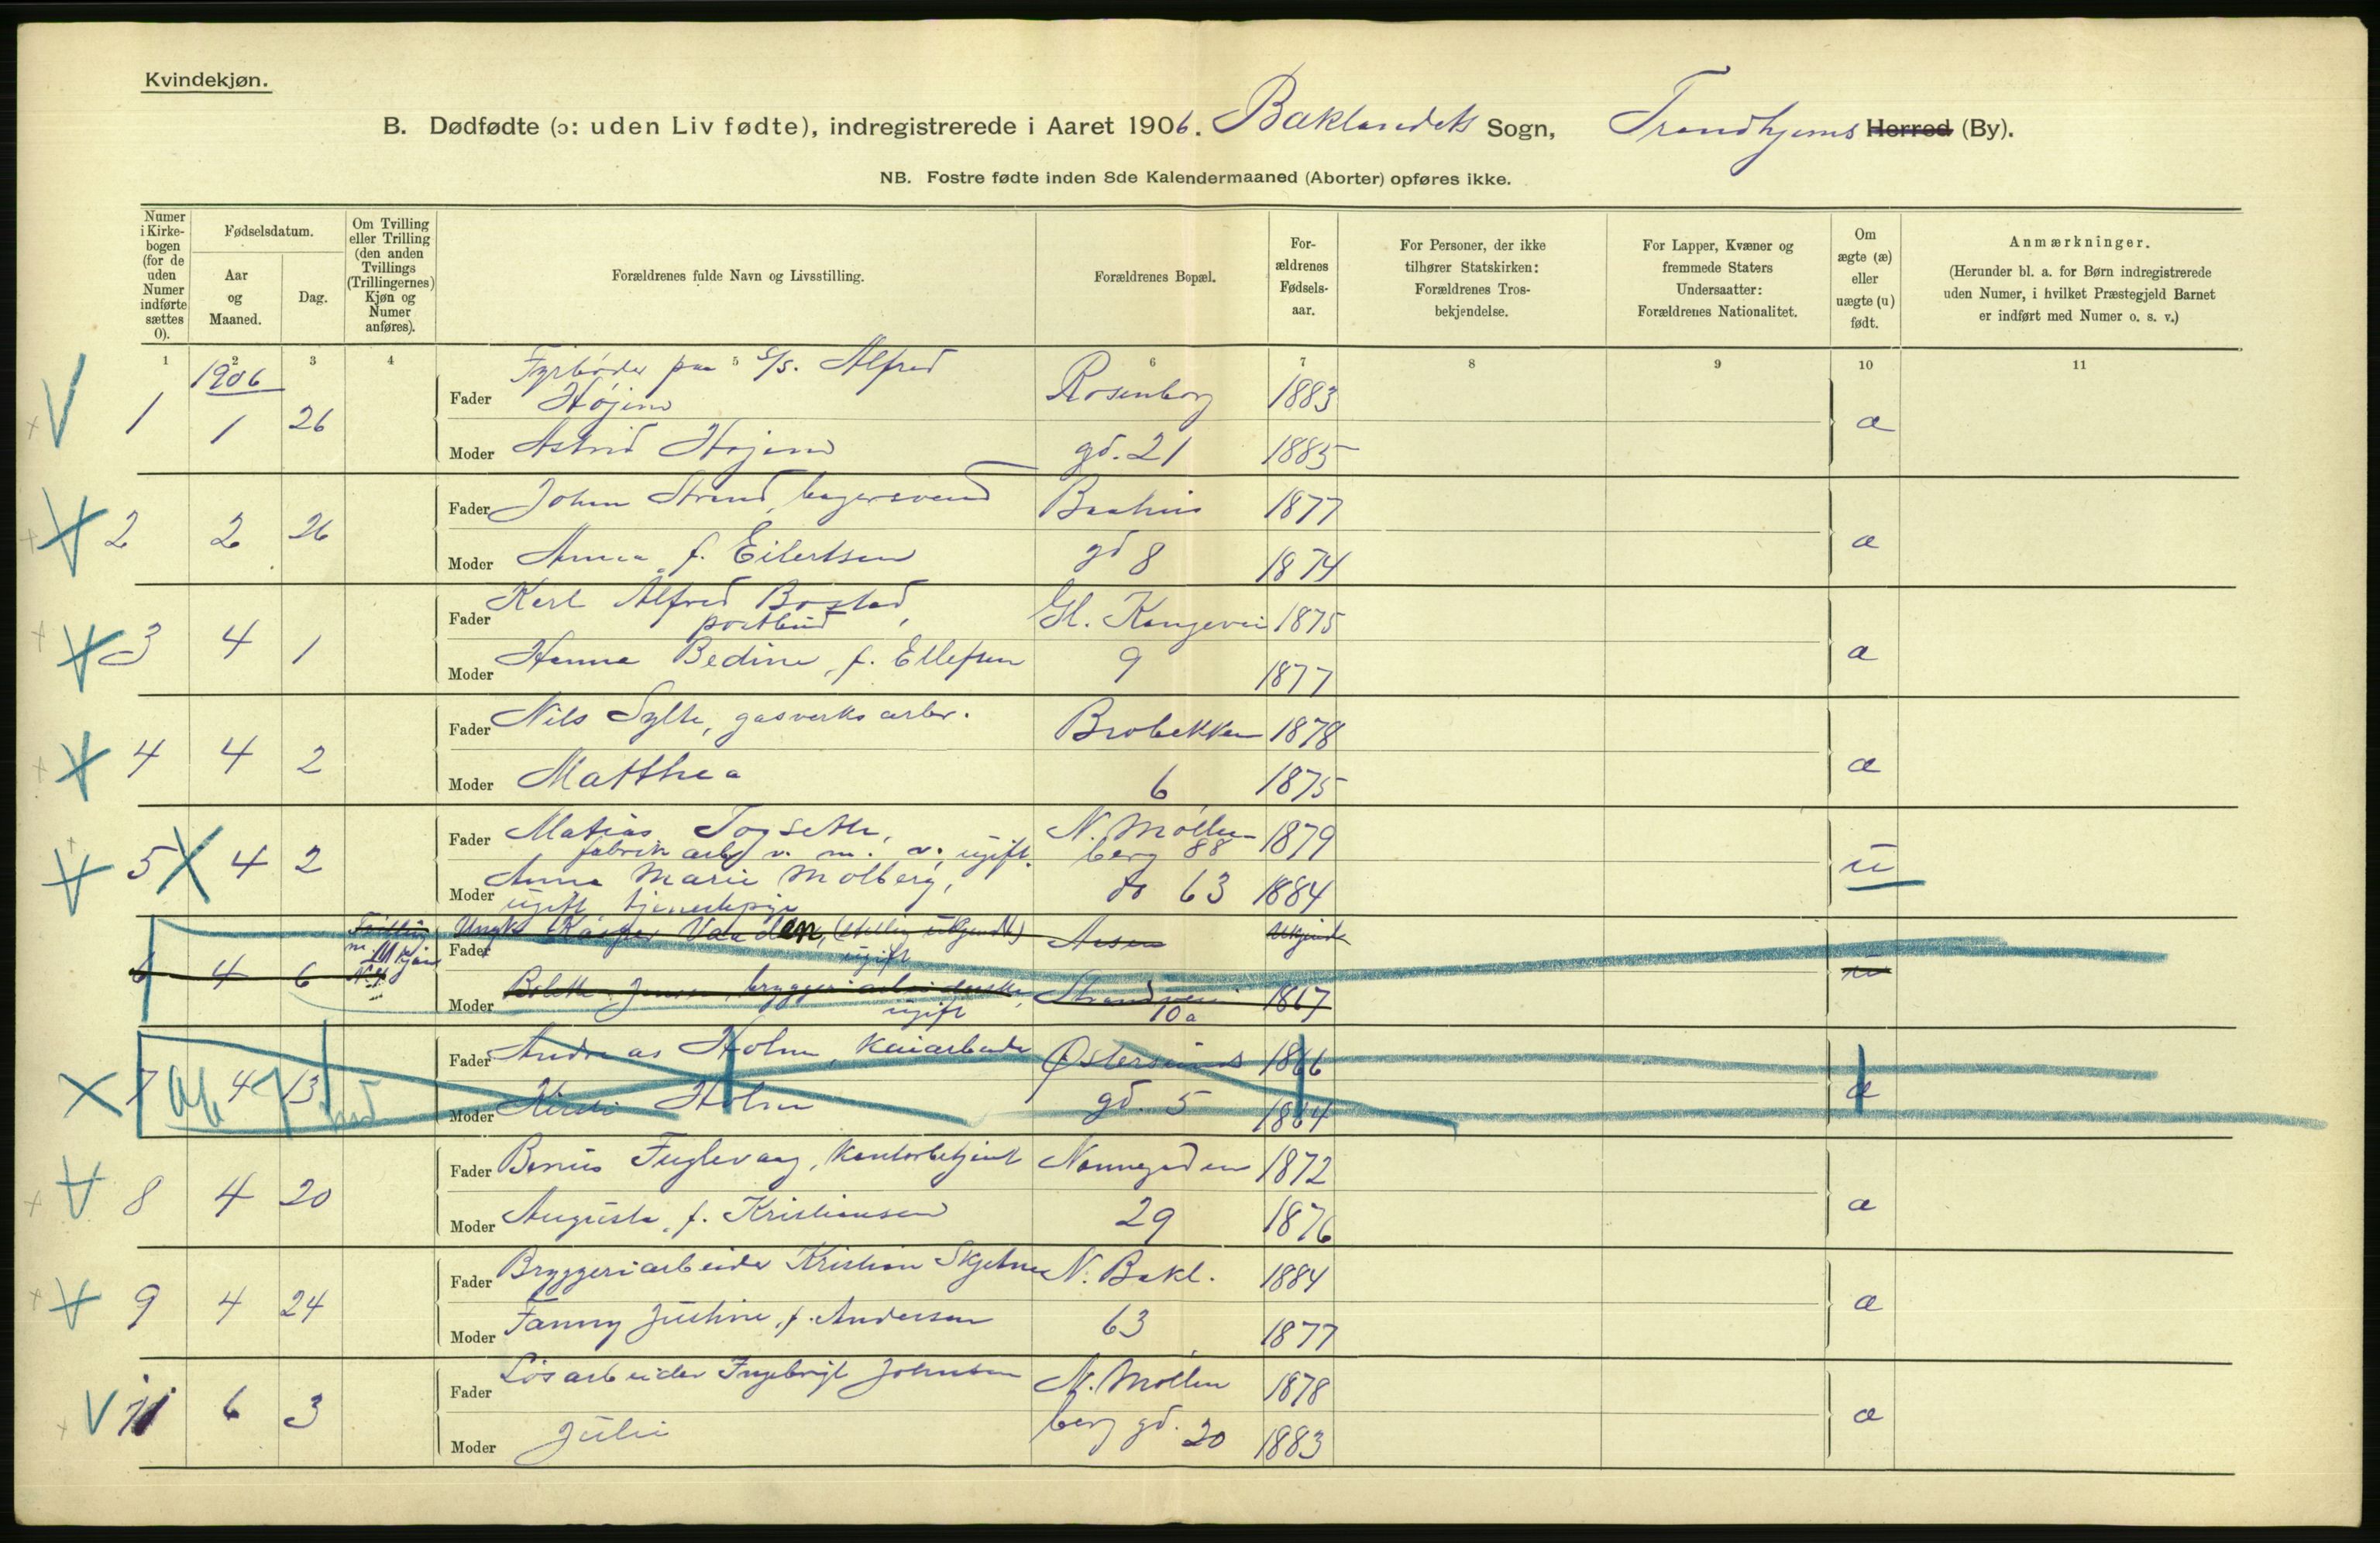 Kvindekjøn.
B. Dødfødte (ɔ: uden Liv fødte), indregistrerede i Aaret 1906. Baklandets Sogn, Trondhjems Herred (By).
NB. Fostre fødte inden 8de Kalendermaaned (Aborter) opføres ikke.
Numer i Kirkebogen (for de uden Numer indførte sættes 0).
Fødselsdatum.
Aar og Maaned.
Dag.
Om Tvilling eller Trilling (den anden Tvillings (Trillingernes) Kjøn og Numer anføres).
Forældrenes fulde Navn og Livsstilling.
Forældrenes Bopæl.
Forældrenes Fødselsaar.
For Personer, der ikke tilhører Statskirken: Forældrenes Trosbekjendelse.
For Lapper, Kvæner og fremmede Staters Undersaatter: Forældrenes Nationalitet.
Om ægte (æ) eller uægte (u) født.
Anmærkninger.
(Herunder bl. a. for Børn indregistrerede uden Numer, i hvilket Præstegjeld Barnet er indført med Numer o. s. v.)
1 2 3 4 5 6 7 8 9 10 11
1906
1 1 26 Fader Fyrbøder paa S/S. Alfred Højem Rosenborg 1883 æ
Moder Astrid Højem gd. 21 1885
2 2 26 Fader Johan Strand, bagersvend Baahus 1877 æ
Moder Anna f. Eilertsen gd 8 1874
3 4 1 Fader Karl Alfred Bostad, postbud Gl. Kongevei 1875 æ
Moder Hanna Bedine, f. Ellefsen 9 1877
4 4 2 Fader Nils Sylte, gasverksarbr. Brobekken 1878 æ
Moder Matthea 6 1875
5 4 2 Fader Matias Togseth, fabrikarb v. m. v., ugift. N. Møllenberg 88 1879 u
Moder Anna Marie Molberg, ugift tjenestepige do 63 1884
6 4 6 Tvilling m. M kjøn No 4 Fader Ungk. Kasper Vaaden, (stilling ukjendt) ugift Aasen Ukjendt u
Moder Bolette Jensen, bryggeriarbeiderske, ugift Strandveien 10a 1867
7 4 13 Fader Andreas Holm, kaiarbeider Østersunds 1866 æ
Moder Holm gd. 5 1864
8 4 20 Fader Benus Fuglevaag, kontorbetjent Nonnegaden 1872 æ
Moder Augusta, f. Kristiansen 29 1876
9 4 24 Fader Bryggeriarbeider Kristian Skjetne N. Bakl. 1884 æ
Moder Fanny Justine, f. Andersen 63 1877
11 6 3 Fader Løsarbeider Ingebrigt Johnsen N. Møllenberg gd. 20 1878 æ
Moder Julie 1883